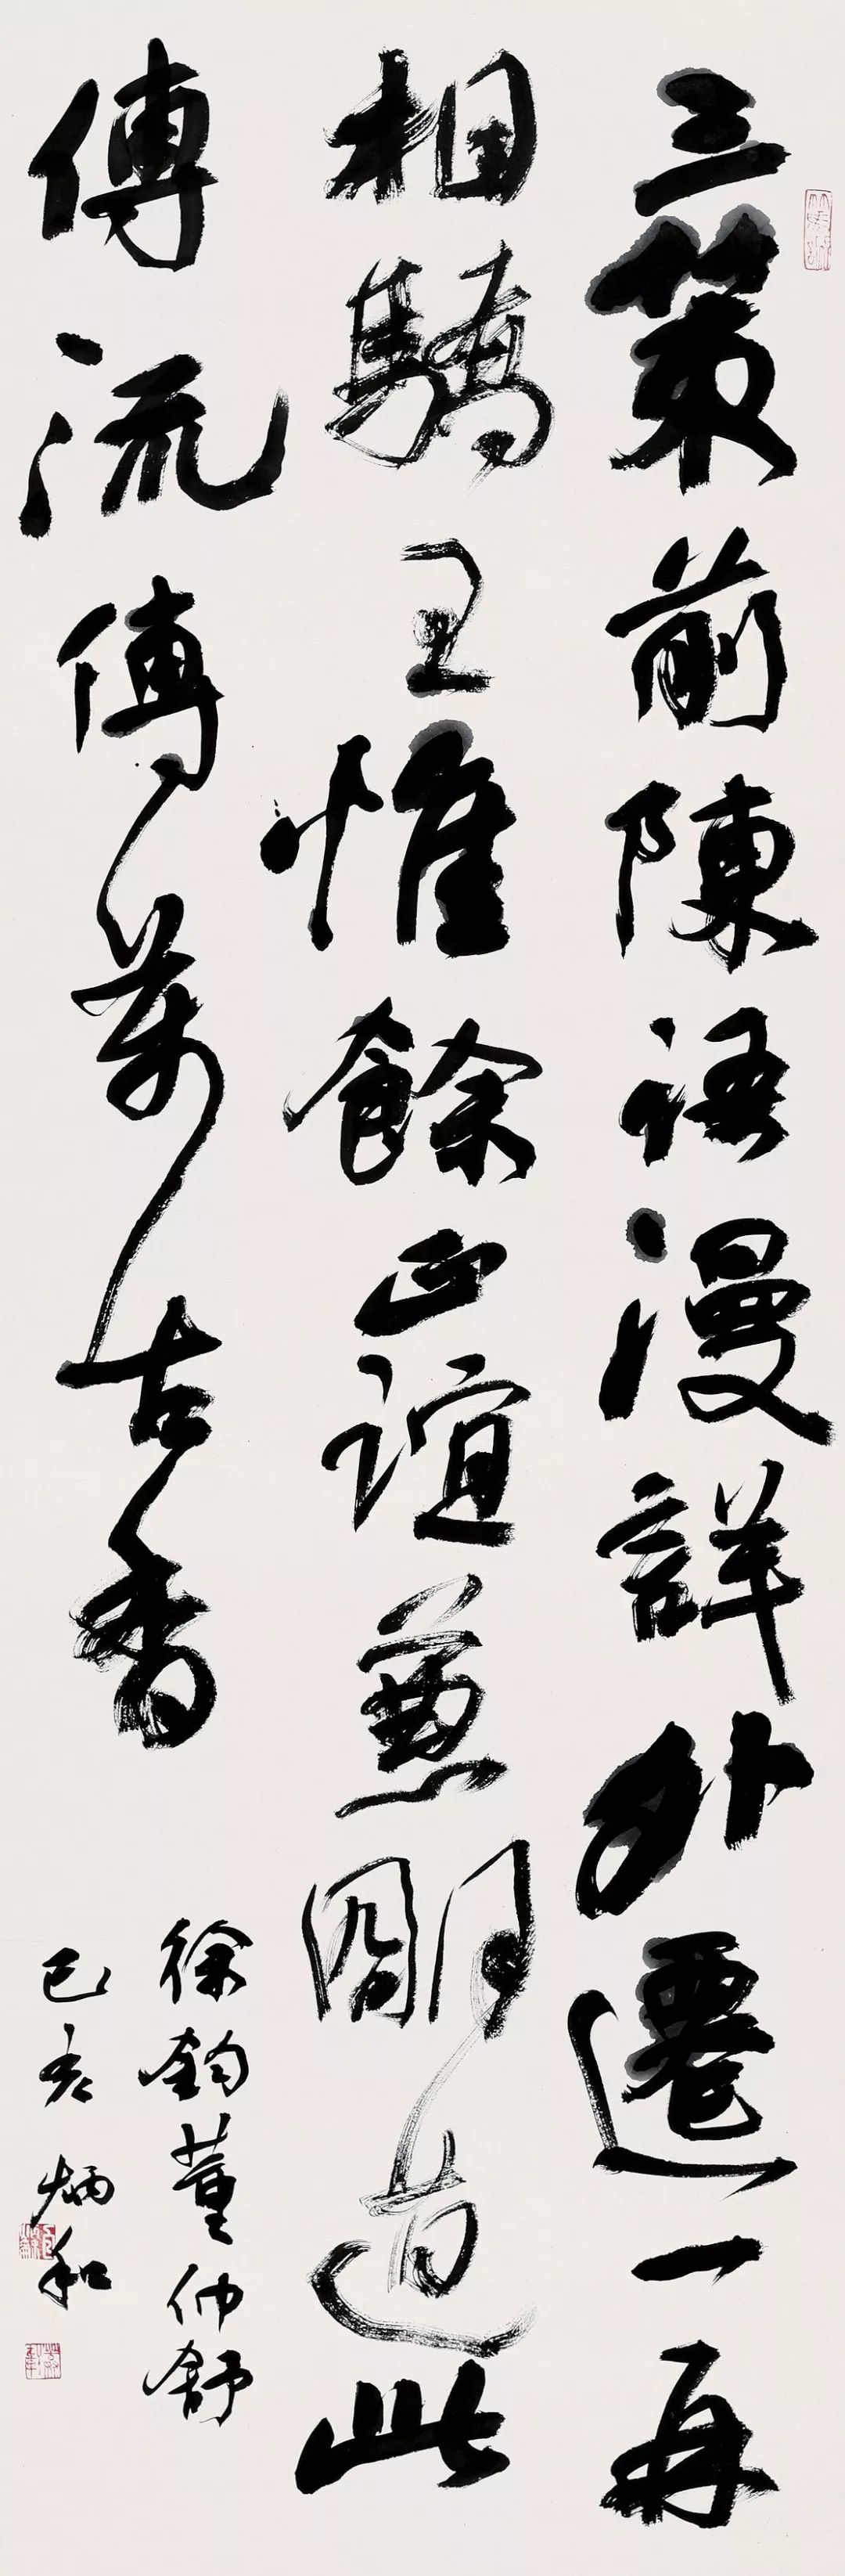 三策前陳語漫詳外遷一再
相驕王惟餘正誼兼明道此
傳流傳萬古香
徐鈞董仲舒
己亥炳和